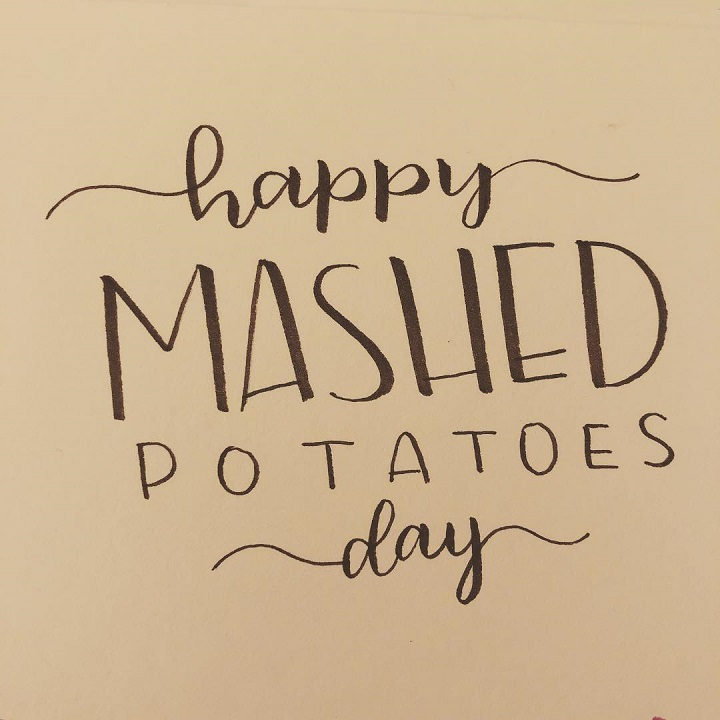 happy
MASHED
POTATOES
day